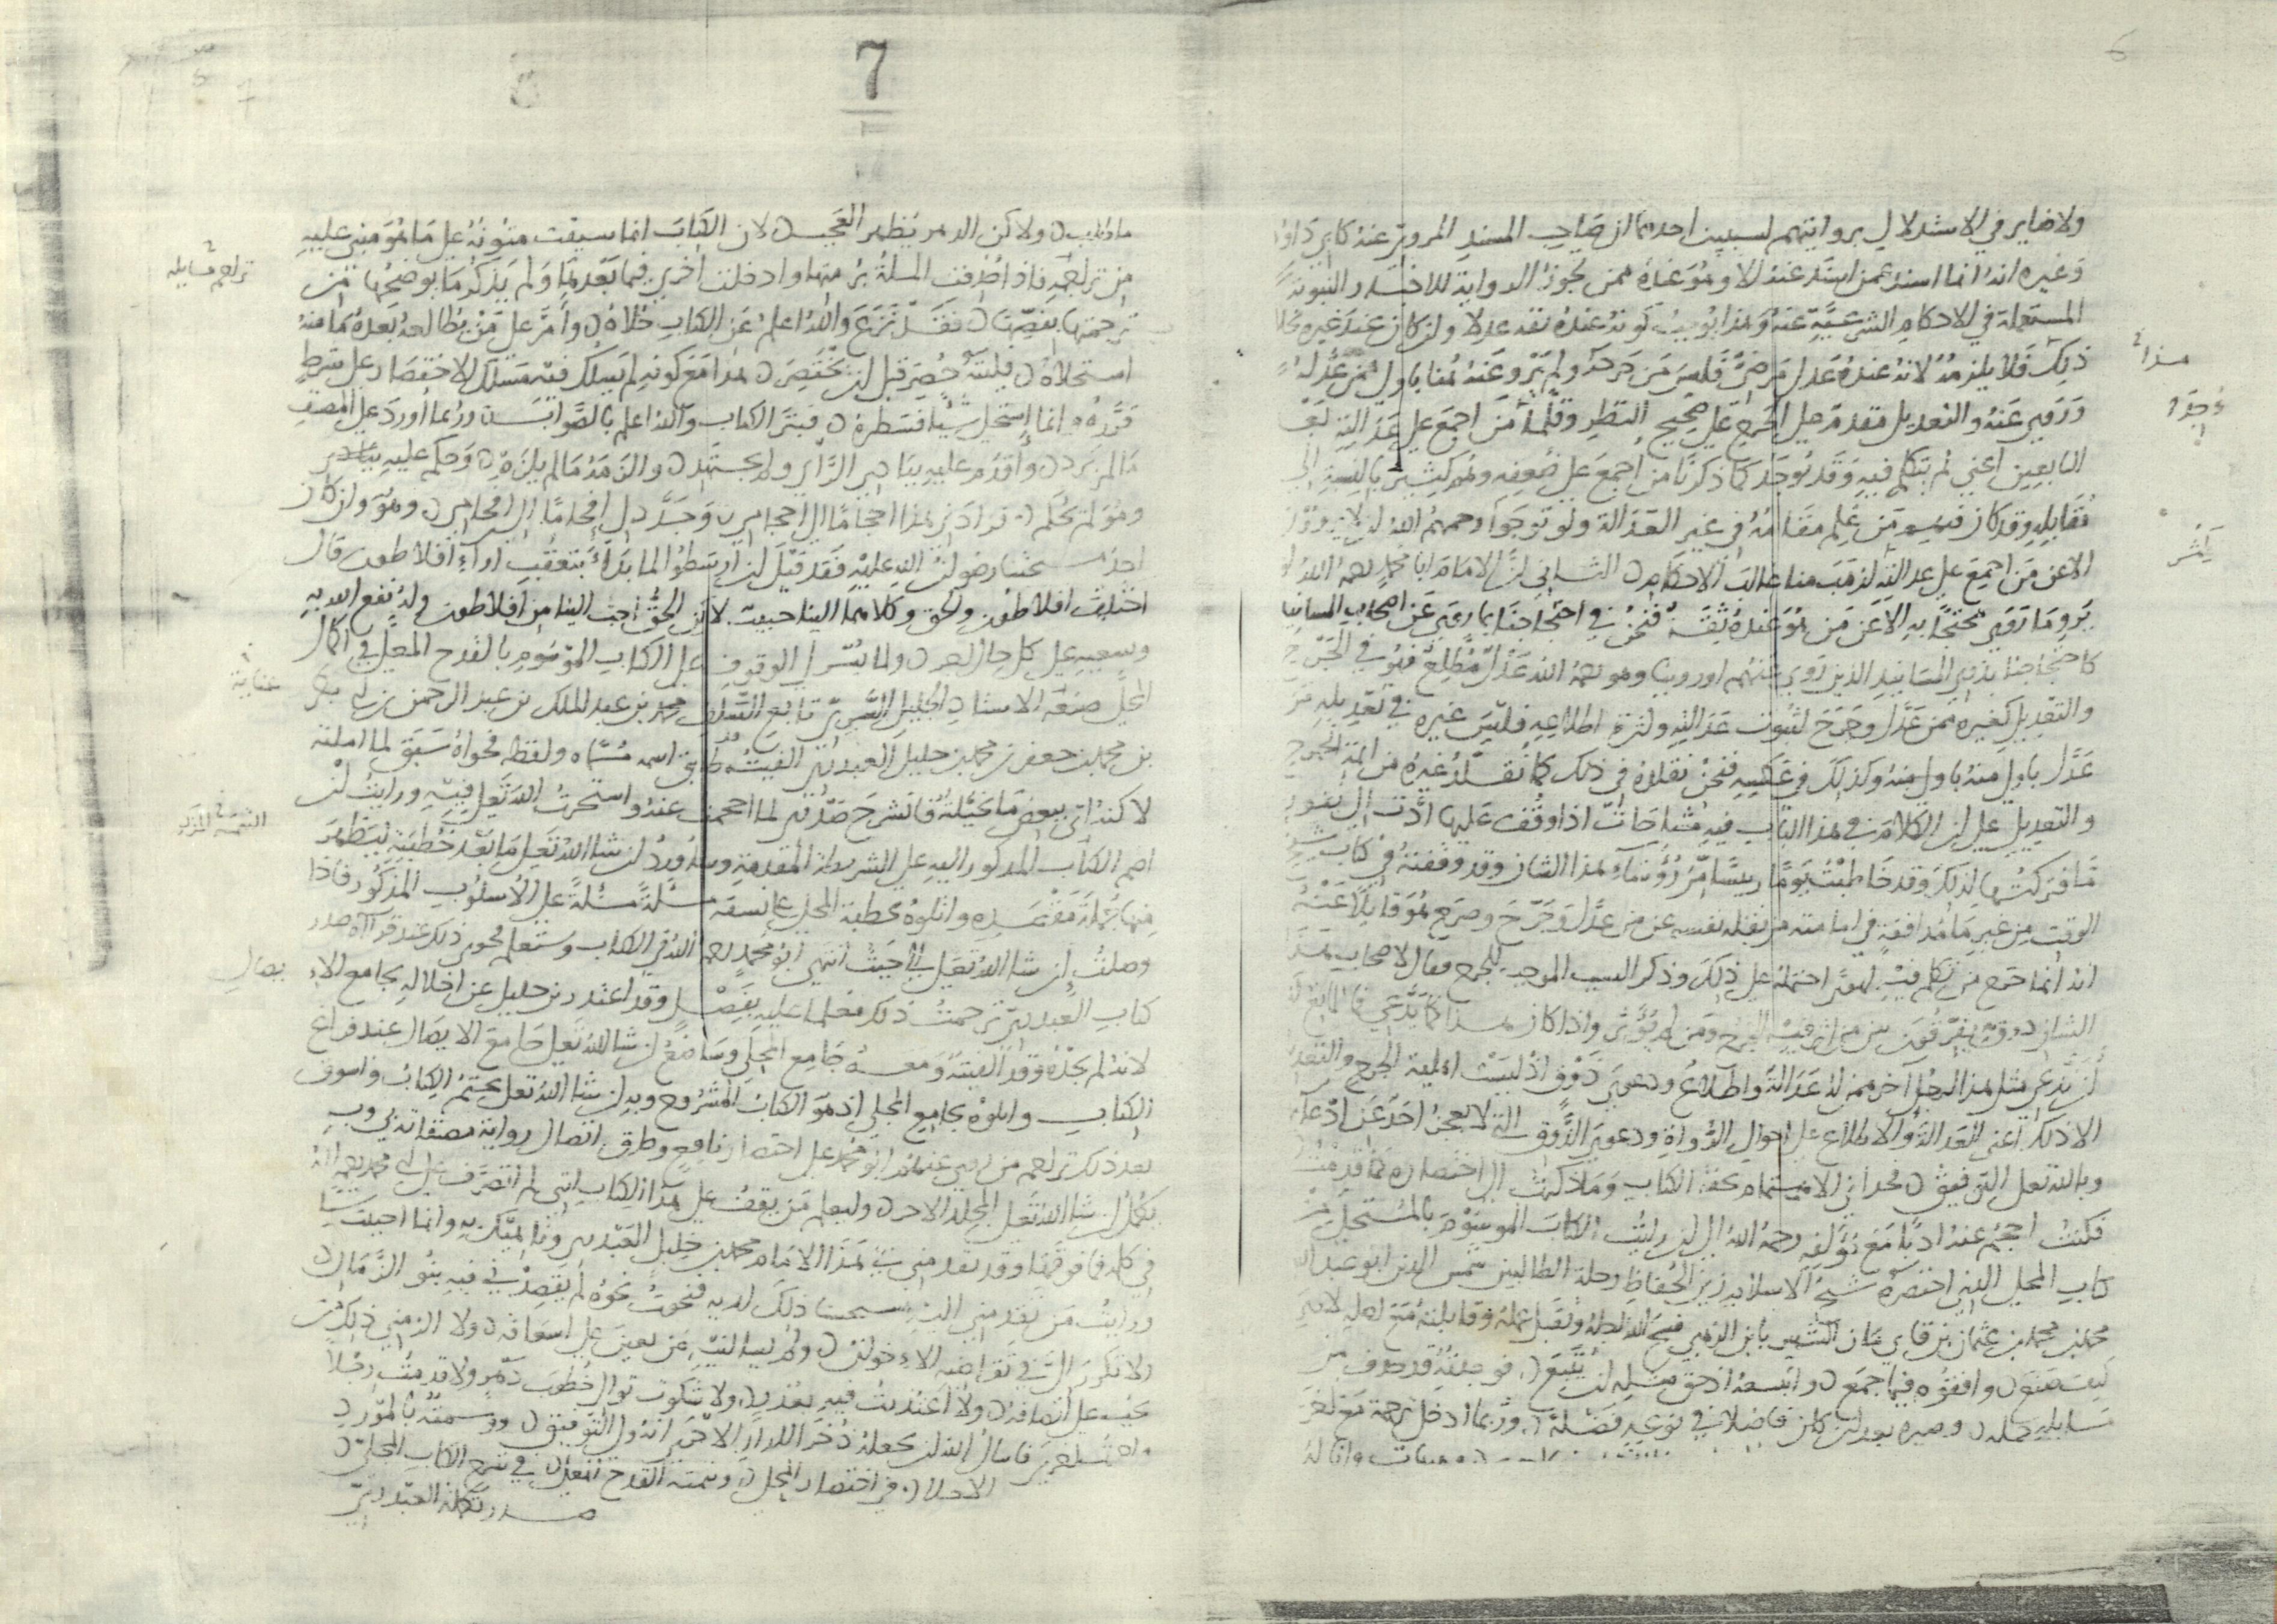 ولا ضاير في الاستدلال بروايتهم لسببين احدهما ان صاحب المسند المروي عنه كابي داود
وغيره انه انما اسند عمن اسند عنه الا وهو عنده ممن تجوز الرواية للاخبار النبوية
المستعملة في الاحكام الشرعية عنه وهذا يوجب كونه عنده ثقة عدلا وان كان عند غيره بخلاف
ذلك فلا يلزمه لانه عنده عدل مرضي فليس من جرحه ولم يرو عنه هنا باولى ممن عدله
وروى عنه والتعديل مقدم على الجرح على صحيح النظر وقلما من اجمع على عدالته بعد
التابعين اعني لم يتكلم فيه وقد يوجد كما ذكرنا من اجمع على ضعفه وهو كثير بالنسبة الى
مقابله وقد كان فيهم من علم مقامه في غير العدالة ولو توخوا رحمهم الله ان لا يرووا
الا عن من اجمع على عدالته لذهب منا غالب الاحكام الثاني ان الامام ابا محمد رحمه الله لم
يرو ما روى محتجا به الا عن من هو عنده ثقة فنحن في احتجاجنا بما روى عن اصحاب المسانيد
كاحتجاجنا بذوي المسانيد الذين روى عنهم او روينا وهو رحمه الله عدل مطلع فهو في الجرح
والتعديل كغيره ممن عدل وجرح لثبوت عدالته وكثرة اطلاعه فليس غيره في تعديله من
عدل باولى منه باولى منه وكذلك في عكسه فنحن نقلده في ذلك كما نقلد غيره من ائمة الجرح
والتعديل على ان الكلام في هذا الباب فيه مشاحات اذا وقف عليها ادت الى نفور
ما فتركتها لذلك وقد خاطبت يوما رييسا من رؤساء هذا الشان وقد وقفته في كتاب شيخ
الوقت من غير ما مدافعة في امامته من نقله نفسه عن من عدل وجرح وصرح هو قايلا عنه
انه انما جرح من تكلم فيه لهوى احتمله على ذلك وذكر السبب الموجب للجرح فقال لاصحاب هذا
الشان ذوق يفرقون بين من اثر فيه الجرح ومن لم يؤثر واذا كان هذا كما يدعي فما المانع له
ان يدعي مثل هذا الرجل آخر ممن له عدالة واطلاع ودعوى ذوق اذ ليست اهلية الجرح والتعديل
الا ذلك اعني العدالة والاطلاع على احوال الرواة ودعوى الذوق التي لا يعجز احد عن ادعائه
وبالله تعلى التوفيق محداني الاهتمام بحق الكتاب وما ذكرت الى اختصاره مما قدمت
فكنت احجم عنه ادبا مع مؤلفه رحمه الله الى ان رايت الكتاب الموسوم بالمستحلى من
كتاب المحلى الذي اختصره شيخ الاسلام زين الحفاظ رحلة الطالبين شمس الدين ابو عبد الله
محمد بن محمد بن عثمان بن قايماز الشهير بابن الذهبي فسح الله له وتقبل عمله وقابلته مع
كيف صنع وافقوه فيما جمع واتبعه اذ حق مثله ان يتبع فوجدته قد حذف من
مسايله جملة وصيره بعد ان كان فاضلا في نوعه فضلة وربما ادخل ترجمة مع اخرى
هذا
وجدوا
يتمشى
7
ما وليس ولاكن الدهر يظهر العجب لان الكتاب انما سيقت متونه على ما هو مبني عليه
من تراجمه فاذا حذفت المسلة برمتها وادخلت اخرى فيما بعدها ولم يذكر ما يوضحها من
ترجمتها بنصها فقد نزع والله اعلم عن الكتاب حلاه وامر على من يطالعه بعده ما منه
استحلاه فليته حصر قبل ان يختصر هذا مع كونه لم يسلك فيه مسلك الاختصار على شرط
قرره انما استحلى شيا فسطره فبتر الكتاب والله اعلم بالصواب وربما اورد على المصنف
ما لم يرد واقدم عليه ببادي الراي ولم يجتهد والزمه ما لم يلزم وحكم عليه بنادر
وهو لم يحكم فزادني هذا احجاما الى احجامي وجدد لي اقحاما الى اقحامي وهو وان كان
احد شيخنا رضوان الله عليه فقد قيل ان ارسطو لما بدا بتعقب اراء افلاطون قال
اختلف افلاطون والحق وكلاهما الينا حبيب لاكن الحق احب الينا من افلاطون وله نفع الله به
وسعيه على كل حال الحمد ولما يسر لي الوقوف على الكتاب الموسوم بالقدح المعلى في اكمال
المحلى صنعه الاستاذ الجليل السري تابع السلف محمد بن عبد الملك بن عبد الرحمن بن
بن محمد بن جعفر بن محمد بن خليل العبدري الفيته طابق اسمه مسماه ولفظه فحواه سبق لما املته
لاكنه اتى ببعض ما تخيلته فانشرح صدري لما احجمت عنه واستخرت الله تعلى فيه ورايت ان
اضم الكتاب المذكور اليه على الشريطة المقدمة وساورد ان شا الله تعلى ما بعد خطبته ليظهر
منها جملة مقصده واتلوه بخطبة المحلى على نسقه مسئلة مسئلة على الاسلوب المذكور فاذا
وصلت ان شا الله تعلى الى حيث انتهى ابو محمد رحمه الله في الكتاب وستعلم فحوى ذلك عند قراءة صدر
كتاب العبدري ترجمت ذلك معلما عليه بفصل وقد اعتذر بن خليل عن اخلاله بجامع الا
لانه لم يجده وقد الفيته ومعه جامع المحلى وساضع ان شا الله تعلى جامع الايصال عند فراغ
الكتاب واتلوه بجامع المحلى اذ هو الكتاب المشروح وبه ان شا الله تعلى يختتم الكتاب واسوق
بعد ذلك تراجم من روى عنهم ابو محمد على اختصار نافع وطرق اتصال رواية مصنفاته وبه
يكمل ان شا الله تعلى المجلد الاحد وليعلم من يقف على هذا الكتاب انني لم اتصرف على ابي محمد رحمه الله
في كلمة فما فوقها وقد تقدمني في هذا الامام محمد بن خليل العبدري وانما احببت
ورايت من تقدمني الى ذلك لديه فنحوت نحوه لم يقصدني فيه بنو الزمان
ولا تكرر الي في تقاضيه الاخوان ولم يسالنيه من يعين على اسعافه ولا الزمني ذلك من
يجب علي انصافه ولا اعتذرت فيه بعذر ولا شكوت توالي خطوب دهر ولا قدمت رجلا
واخرت اخرى فاسال الله ان يجعله ذخرا للدار الاخرى انه ولي التوفيق ووسمته بالمورد
الاحلى في اختصار المحلى وتتمة القدح المعلى في شرح الكتاب المحلى
صدر تكملة العبدري
تراجم مسايله
عناية
التتمة المورد
يصال